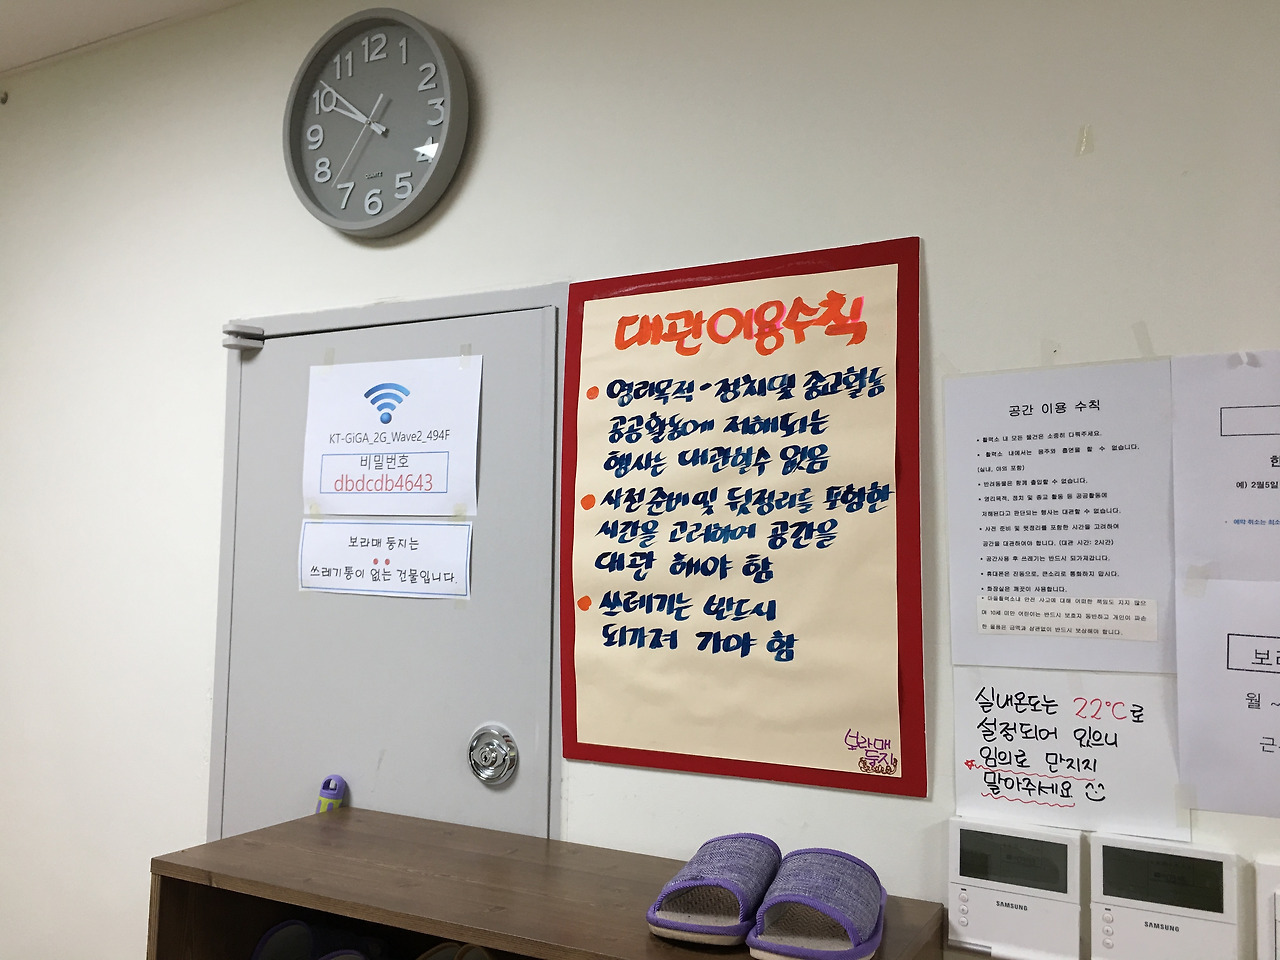 12
1
2
3
4
5
6
7
8
9
10
11
QUARTZ
KT-GiGA_2G_Wave2_494F
비밀번호
dbdcdb4643
보라매 둥지는
쓰레기통이 없는 건물입니다.
대관이용수칙
영리목적·정치 및 종교활동
공공활동에 저해되는
행사는 대관할수 없음
사전준비 및 뒷정리를 포함한
시간을 고려하여 공간을
대관 해야 함
쓰레기는 반드시
되가져 가야 함
보라매
둥지
공간 이용 수칙
활력소 내 모든 물건은 소중히 다뤄주세요.
활력소 내에서는 음주와 흡연을 할 수 없습니다.
(실내, 야외 포함)
반려동물은 함께 출입할 수 없습니다.
영리목적, 정치 및 종교 활동 등 공공활동에
저해된다고 판단되는 행사는 대관할 수 없습니다.
사전 준비 및 뒷정리를 포함한 시간을 고려하여
공간을 대관하여야 합니다. (대관 시간: 2시간)
공간사용 후 쓰레기는 반드시 되가져갑니다.
휴대폰은 진동으로, 큰소리로 통화하지 맙시다.
화장실은 깨끗이 사용합니다.
마을활력소내 안전 사고에 대해 어떠한 책임도 지지 않으
며 10세 미만 어린이는 반드시 보호자 동반하고 개인이 파손
한 물품은 금액과 상관없이 반드시 보상해야 합니다.
실내온도는 22°C로
설정되어 있으니
임의로 만지지
말아주세요
예) 2월5일
예약 취소는 최소
보라
월 ~
근
SAMSUNG
SAMSUNG